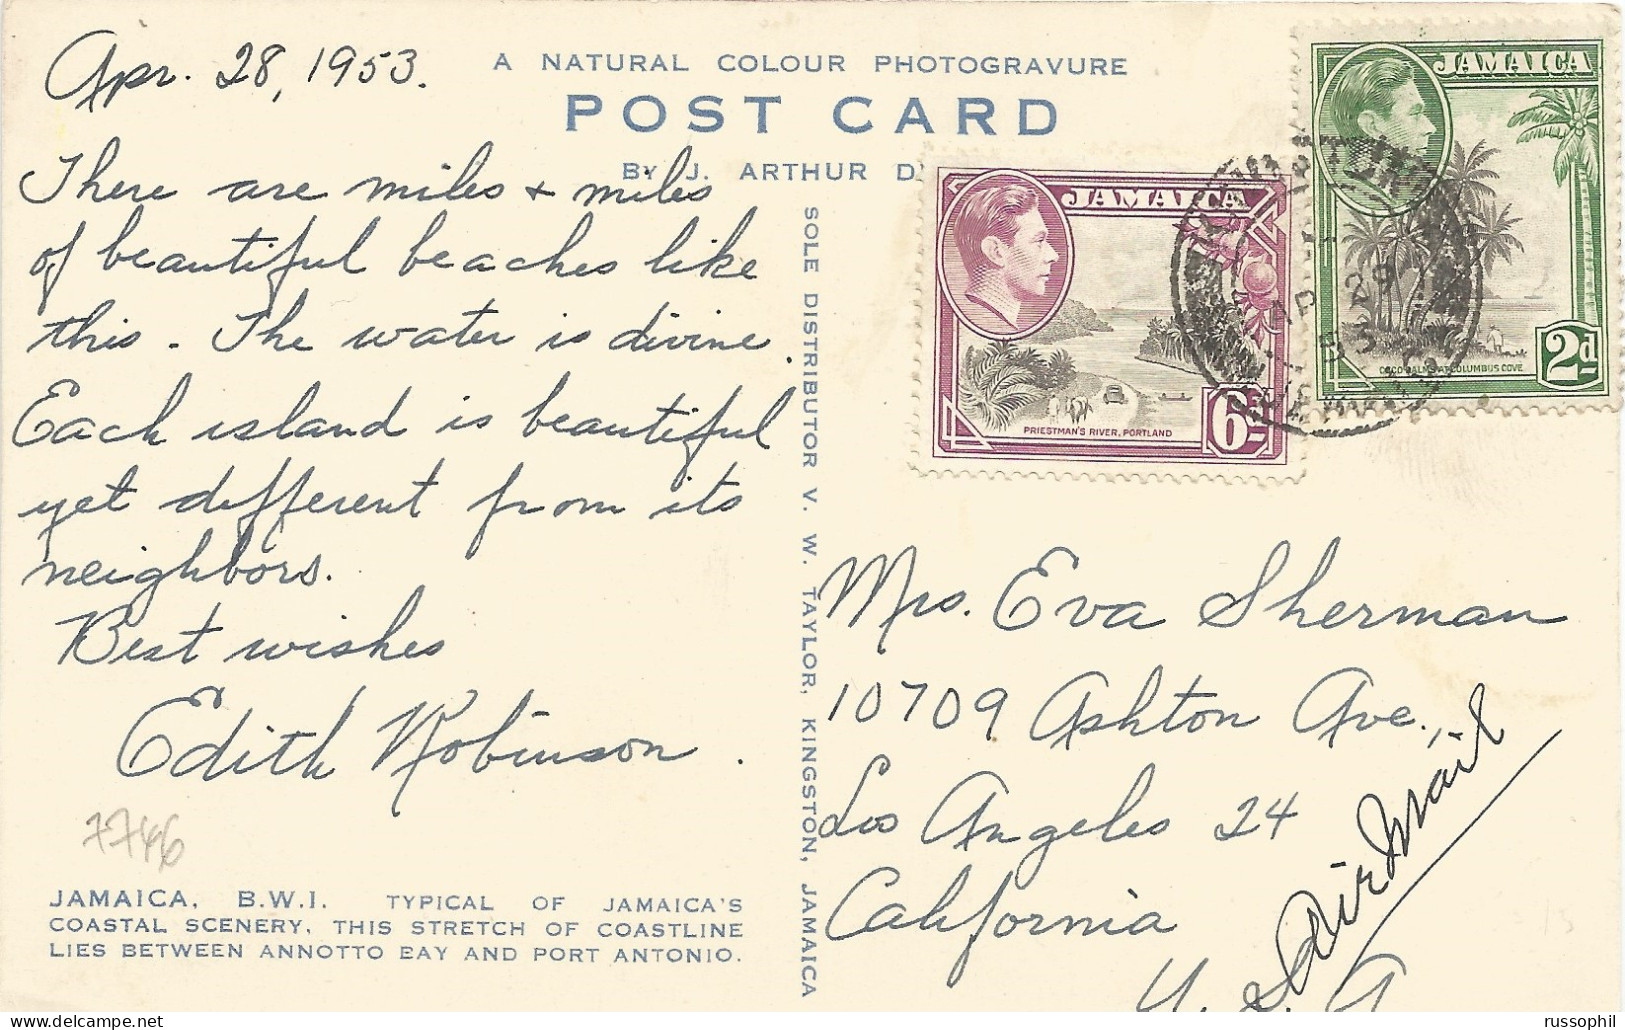 Apr. 28, 1953.
There are miles + miles
of beautiful beaches like
this. The water is divine.
Each island is beautiful
yet different from its
neighbors.
Best wishes
Edith Robinson.
7746
JAMAICA, B.W.I. TYPICAL OF JAMAICA'S
COASTAL SCENERY, THIS STRETCH OF COASTLINE
LIES BETWEEN ANNOTTO BAY AND PORT ANTONIO.
A NATURAL COLOUR PHOTOGRAVURE
POST CARD
BY J. ARTHUR D
SOLE DISTRIBUTOR V. W. TAYLOR, KINGSTON, JAMAICA
JAMAICA
PRIESTMAN'S RIVER, PORTLAND
6D
JAMAICA
COCO PALMS AT COLUMBUS COVE
2d
AP 29
53
Mrs. Eva Sherman
10709 Ashton Ave.,
Los Angeles 24
California
U. S. A
Air Mail
russophil
www.delcampe.net